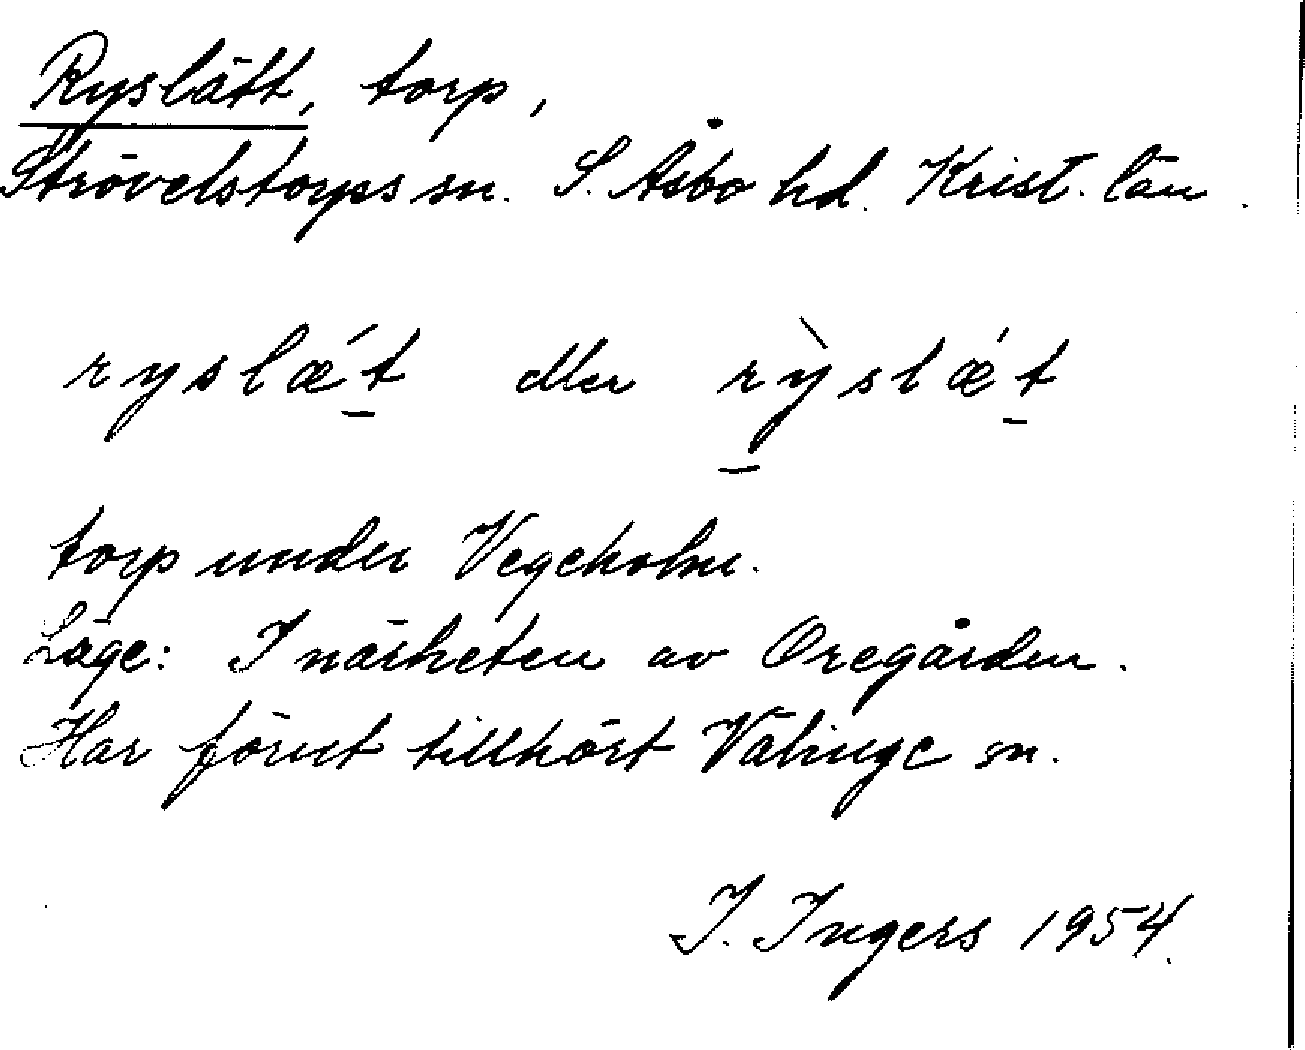 Ryslätt, torp,
Strövelstorps sn. S. Åsbo hd. Krist. län.
ryslǽt eller rỳslǽt
torp under Vegeholm.
Läge: I närheten av Öregården.
Har förut tillhört Välinge sn.
I. Ingers 1954.